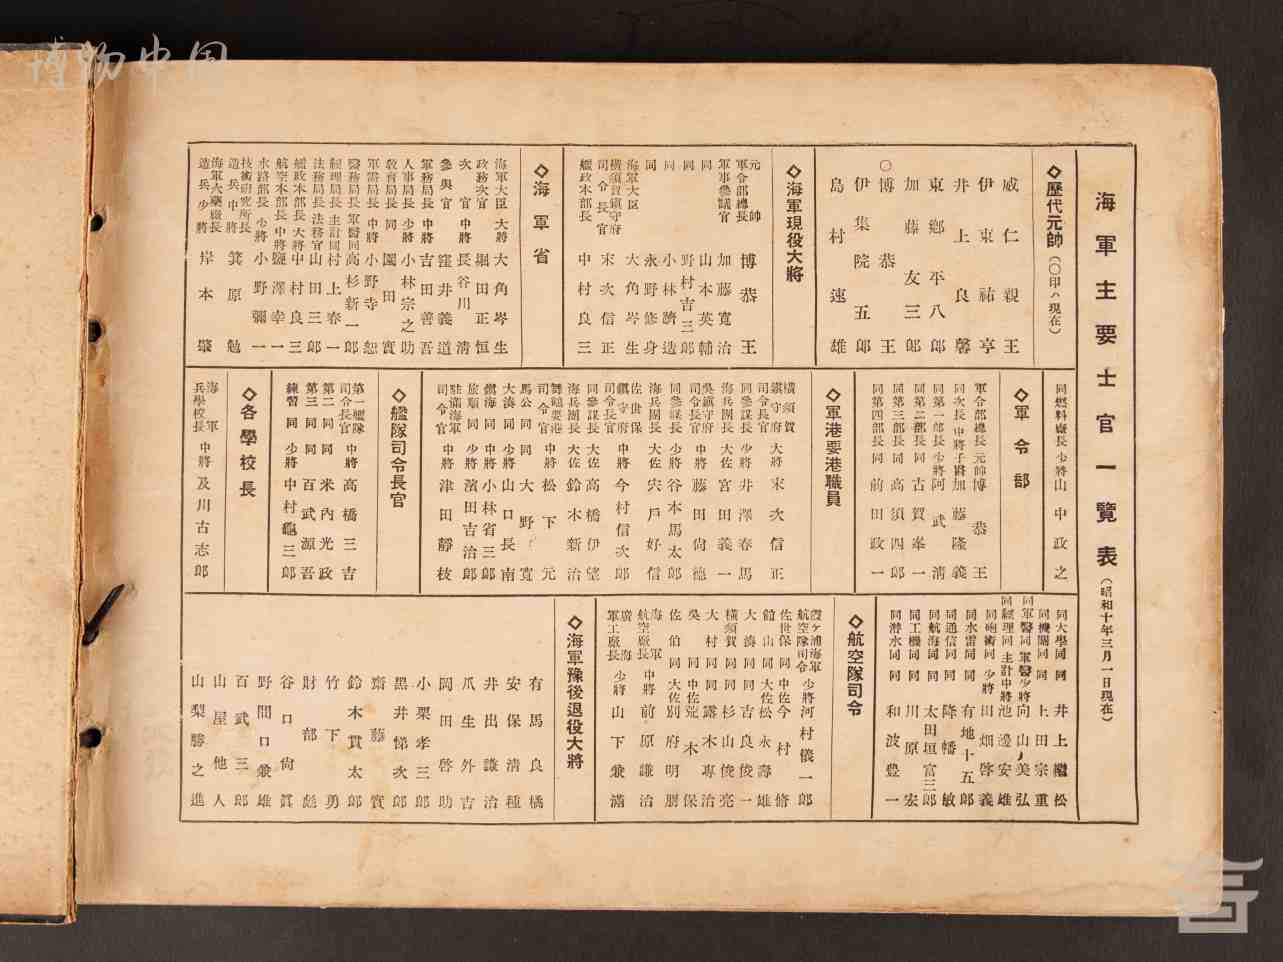 博物中国
海軍主要士官一覽表(昭和十年三月一日現在)
◇歷代元帥(〇印ハ現在)
威仁親王
伊東祐亨
井上良馨
東鄉平八郎
加藤友三郎
〇博恭王
伊集院五郎
島村速雄
◇海軍現役大將
元帥軍令部總長 博恭王
軍事參議官 加藤寬治
同 山本英輔
同 野村吉三郎
同 小林躋造
同 永野修身
海軍大臣 大角岑生
橫須賀鎭守府司令長官 末次信正
艦政本部長 中村良三
◇海軍省
海軍大臣 大將 大角岑生
政務次官 堀田正恒
次官 中將 長谷川淸
參與官 窪井義道
軍務局長 中將 吉田善吾
人事局長 少將 小林宗之助
敎育局長 同 園田實
軍需局長 中將 小野寺恕
醫務局長 軍醫同 高杉新一郎
經理局長 主計同 村上春一
法務局長 法務官 山田三郎
艦政本部長 大將 中村良三
航空本部長 中將 鹽澤幸一
水路部長 少將 小野彌一
技術硏究所長 造兵中將 箕原勉
海軍火藥廠長 造兵少將 岸本肇
同燃料廠長 少將 山中政之
◇軍令部
軍令部總長 元帥 博恭王
同次長 中將子爵 加藤隆義
同第一部長 少將 阿武淸
同第二部長 同 古賀峯一
同第三部長 同 高須四郎
同第四部長 同 前田政一
◇軍港要港職員
橫須賀鎭守府司令長官 大將 末次信正
同參謀長 少將 井澤春馬
海兵團長 大佐 宮田義一
吳鎭守府司令長官 中將 藤田尙德
同參謀長 少將 谷本馬太郎
海兵團長 大佐 宍戶好信
佐世保鎭守府司令長官 中將 今村信次郎
同參謀長 大佐 高橋伊望
海兵團長 大佐 鈴木新治
舞鶴要港司令官 中將 松下元
馬公同 同 大野寬
大湊同 少將 山口長南
鎭海同 中將 小林省三郎
旅順同 少將 濱田吉治郎
駐滿海軍司令官 中將 津田靜枝
◇艦隊司令長官
第一艦隊司令長官 中將 高橋三吉
第二同 同 米內光政
第三同 同 百武源吾
練習同 少將 中村龜三郎
◇各學校長
海軍兵學校長 中將 及川古志郎
同大學同 同 井上繼松
同機關同 同 上田宗重
同軍醫同 軍醫少將 向山美弘
同經理同 主計中將 池邊安雄
同砲術同 少將 田畑啓義
同水雷同 同 有地十五郎
同通信同 同 降幡敏
同航海同 同 太田垣富三郎
同工機同 同 川原宏
同潛水同 同 和波豊一
◇航空隊司令
霞ケ浦海軍航空隊司令 少將 河村儀一郎
佐世保同 中佐 今村脩
館山同 大佐 松永壽雄
大湊同 同 吉良俊一
橫須賀同 同 杉山俊亮
大村同 同 露木專治
吳同 中佐 荒木保
佐伯同 大佐 別府明朋
海軍航空廠長 中將 前原謙治
廣海軍工廠長 少將 山下兼滿
◇海軍豫後退役大將
有馬良橘
安保淸種
井出謙治
瓜生外吉
岡田啓助
小栗孝三郎
黑井悌次郎
齋藤實
鈴木貫太郎
竹下勇
財部彪
谷口尙眞
野間口兼雄
百武三郎
山屋他人
山梨勝之進